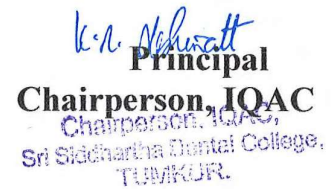 Principal
Chairperson, IQAC
Chairperson, IQAC,
Sri Siddhartha Dental College,
TUMKUR.